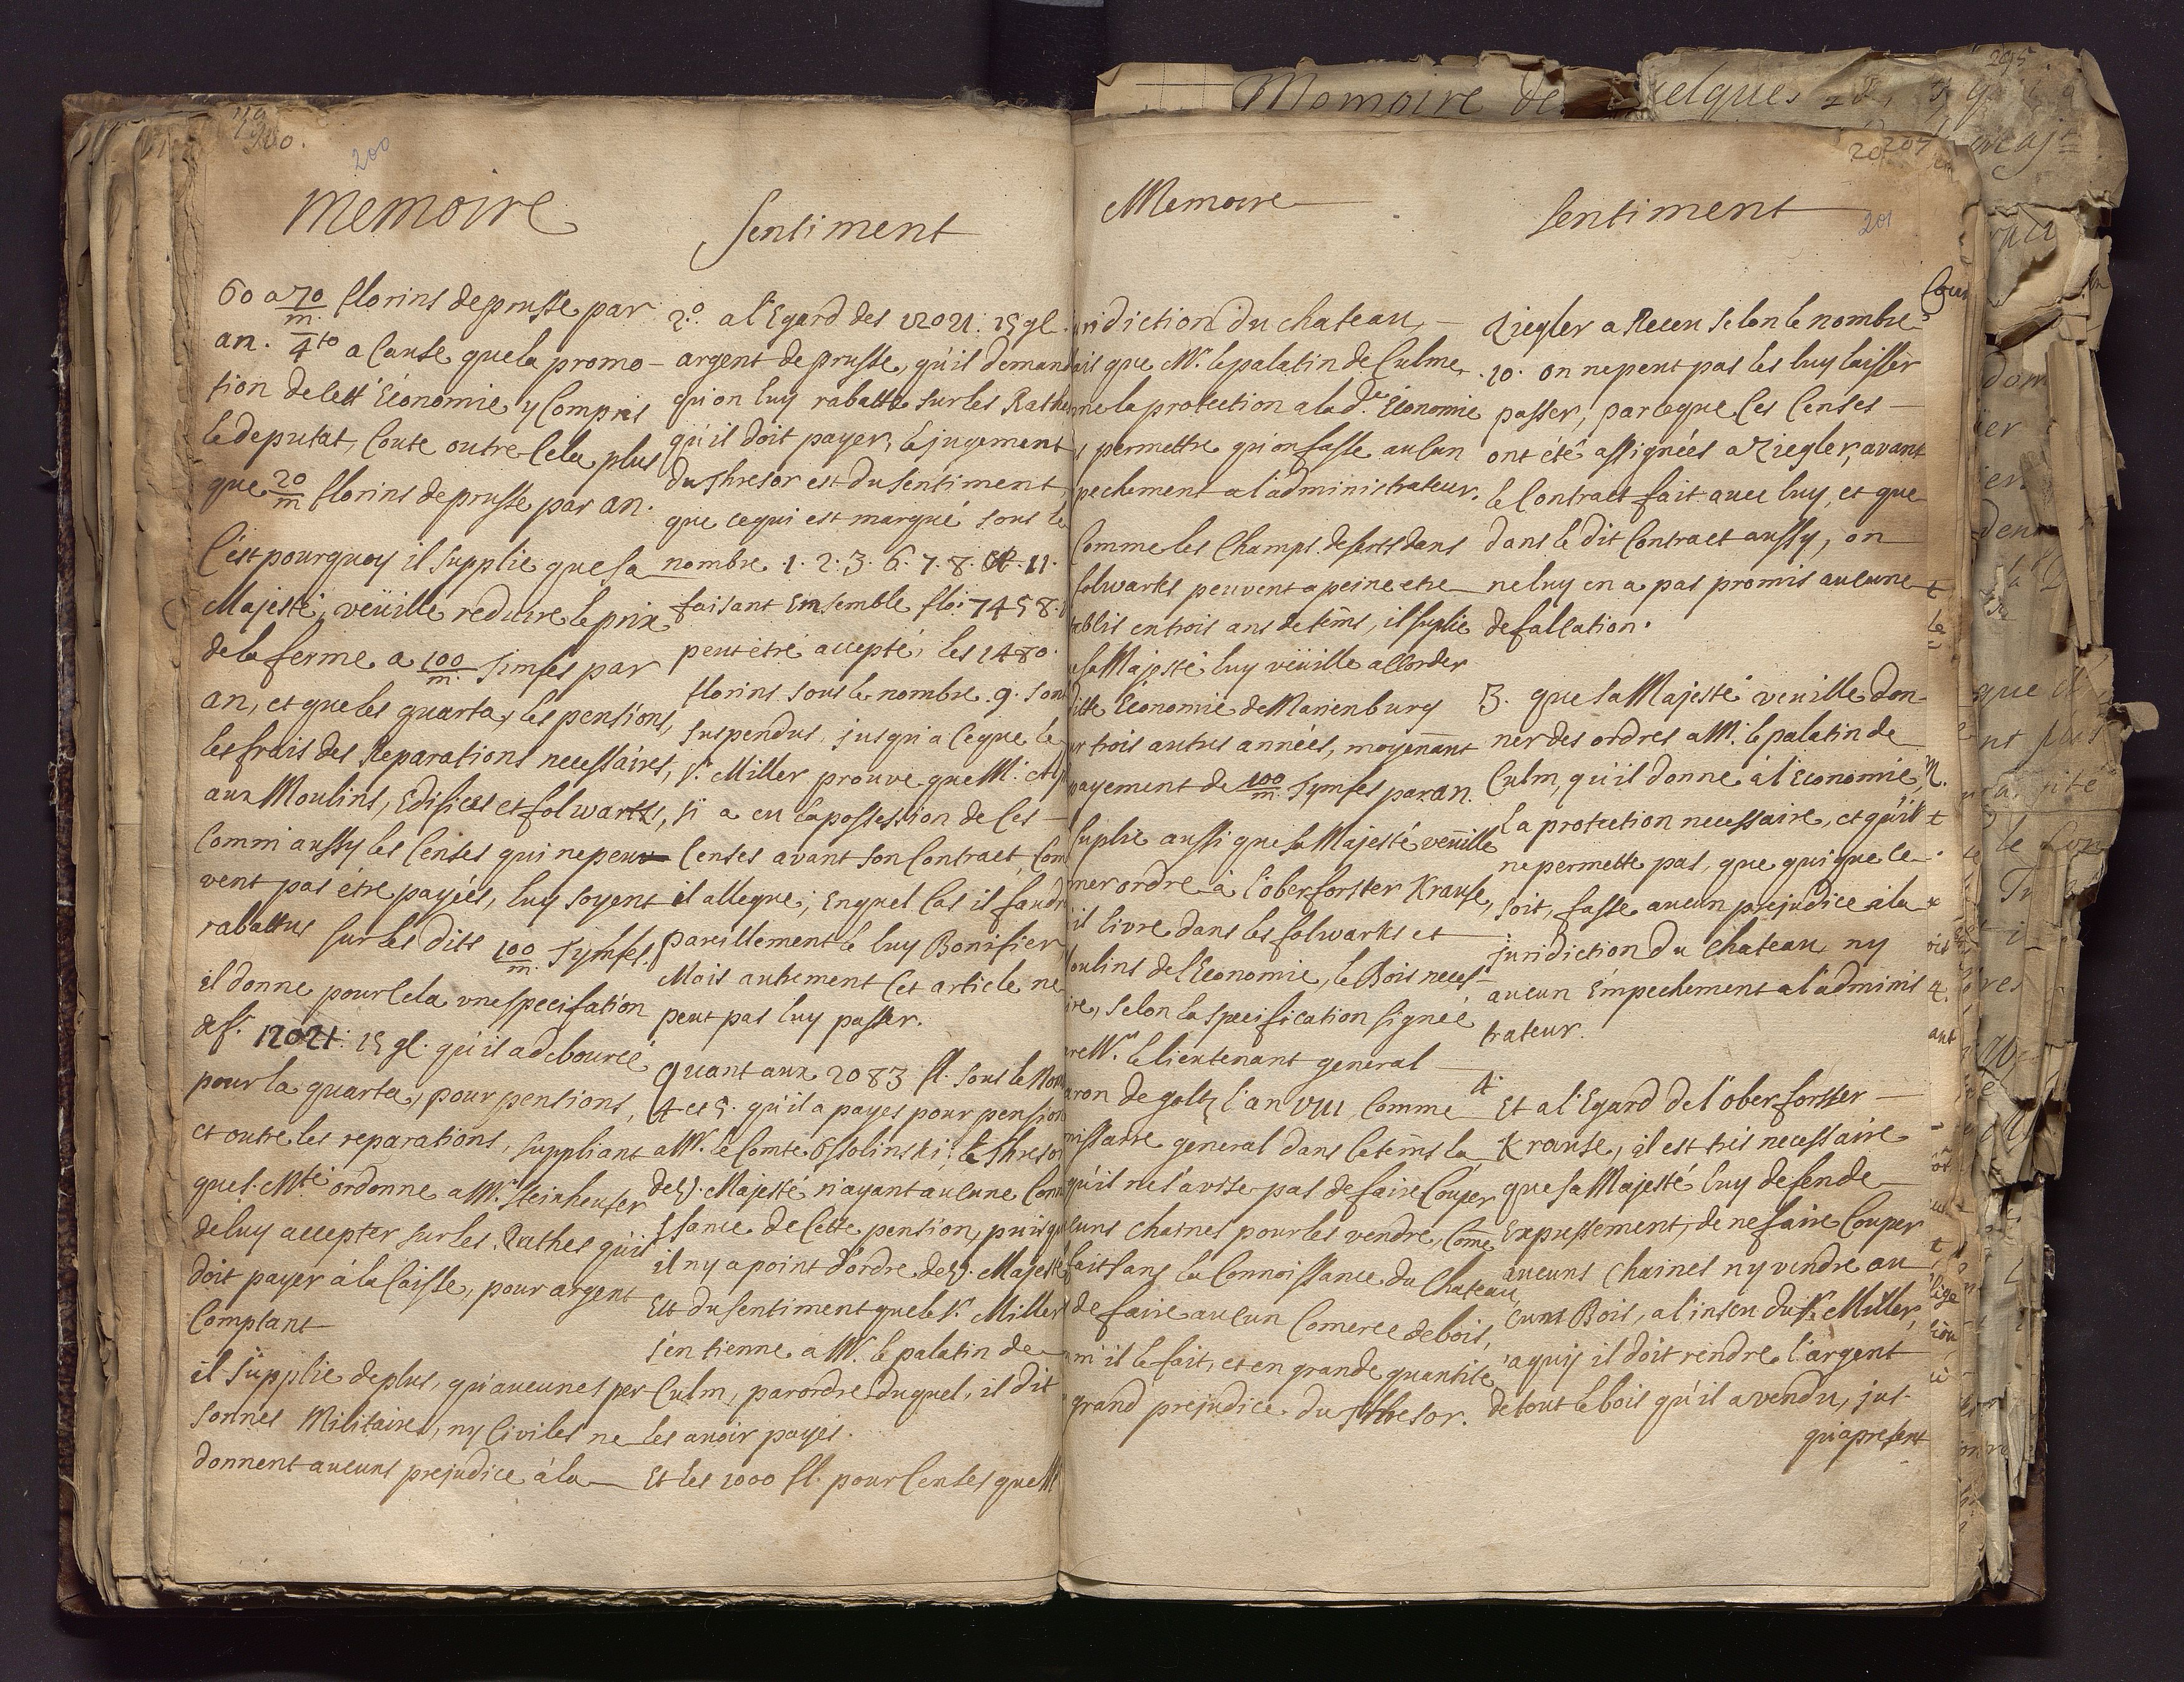 200
Memoire
60 a 70/m florins de prusse par
an. 4to a Cause que la promo-
tion de cett' Economie y Compris
le deputat, Coute outre Cela plus
que 20/m florins de prusse par an.
C'est pourquoy il supplie que sa
Majesté, veüille reduire le prix
de la ferme a 100/m. Timfes par
an, et que les quarta, les pensions,
les frais des Reparations necessaires,
aux Moulins, Edifices et folwarks,
Comm' aussy les Censes qui ne peu
vent pas étre payées, luy soyent
rabattus sur les dits 100/m. Tymfes.
il donne pour Cela une specification
de f. 12021. 15 gl. qu'il a debourcé
pour la quarta, pour pensions,
et outre les reparations, suppliant
que S. Mté ordonne a Mr. Steinheuser
de luy accepter sur les Rathes qu'il
doit payer à la Caisse, pour argent
Comptant
il supplie de plus, qu'aucunes per
sonnes Militaires, ny Civiles ne
donnent aucuns prejudice à la
Sentiment
2.o a l'Egard des 12021. 15 gl.
argent de prusse, qu'il demand
qu'on luy rabatte sur les Rathes
qu'il doit payer, le jugement
du Thresor est du sentiment,
que ce qui est marqué sous le
nombre 1. 2. 3. 6. 7. 8. et 11.
faisant Ensemble flo: 7458.
peut etré accepté, les 1480.
florins sous le nombre 9. sont
suspendus, jusqu'a ceque le
Sr. Miller prouve que M.
si a eu la possession de Ces
Censes avant son Contract, Com
il allegue; Enquel Cas il faudr
pareillement le luy Bonifier,
Mais autrement Cet article ne
peut pas luy passer.
Quant aux 2083 fl. sous le Nom
4 et 5. qu'il a payes pour pension
a Mr. le Comte Ossolinski; le Thresor
de S. Majesté n'ayant aucune Conn
issance de Cette pension, puisqu
il ny a point d'ordre de S. Majesté
Est du sentiment que le Sr. Miller
s'en tienne à Mr. le palatin de
Culm, par ordre duquel, il dit
les avoir payés.
Et les 1000 fl. pour Censes que M
Memoire
uridiction du chateau,
ais que Mr. le palatin de Culme,
nne la protection a la de. Economie
permettre qu'on fasse aucun
pechement a l'administrateur.
Comme les Champs deserts dans
folwarks peuvent a peine etre
tablis en trois ans de tems, il suplie
ue sa Majesté luy veüille accorder
ditte Economie de Marienburg
ur trois autres années, moyennant
payement de 100/m Tymfes par an.
suplie aussi que sa Majesté veüille
nner ordre à l'oberforster Krause,
il livre dans les folwarks et
oulins de l'Economie, le Bois necess-
ire, selon la specification signée
Mr. le lieutenant general
aron de goltz l'an 1711 Comme
missaire general dans le tems la
qu'il ne s'avise pas de faire Couper
cuns chaines pour les vendre, Come
fait sans la Connoissance du Chateau,
de faire aucun Comerce de bois,
m' il le fait, et en grande quantité
grand prejudice du Thresor.
201
Sentiment
Ziegler a Receu selon le nombre
10. on ne peut pas les luy laisser
passer, parceque Ces Censes
ont été assignées a Ziegler, avant
le Contract fait avec luy, et que
dans le dit Contract aussy, on
ne luy en a pas promis aucune
defalcation.
3. que sa Majesté veuille don-
ner des ordres a Mr. le palatin de
Culm, qu'il donne à l'Economie,
la protection necessaire, et qu'il
ne permette pas, que qui que ce
soit, fasse aucun prejudice à la
juridiction du chateau ny
aucun Empechement a l'adminis
trateur.
4. Et a l'Egard de l'oberforster
Krause, il est trés necessaire
que sa Majesté luy defende
Expressement, de ne faire Couper
aucuns chaines ny vendre au
cuns Bois, a l'insceu du Sr. Miller,
a quij il doit rendre l'argent
de tout le bois qu'il a vendu, jus-
qu'apresent
Memoire de quelques